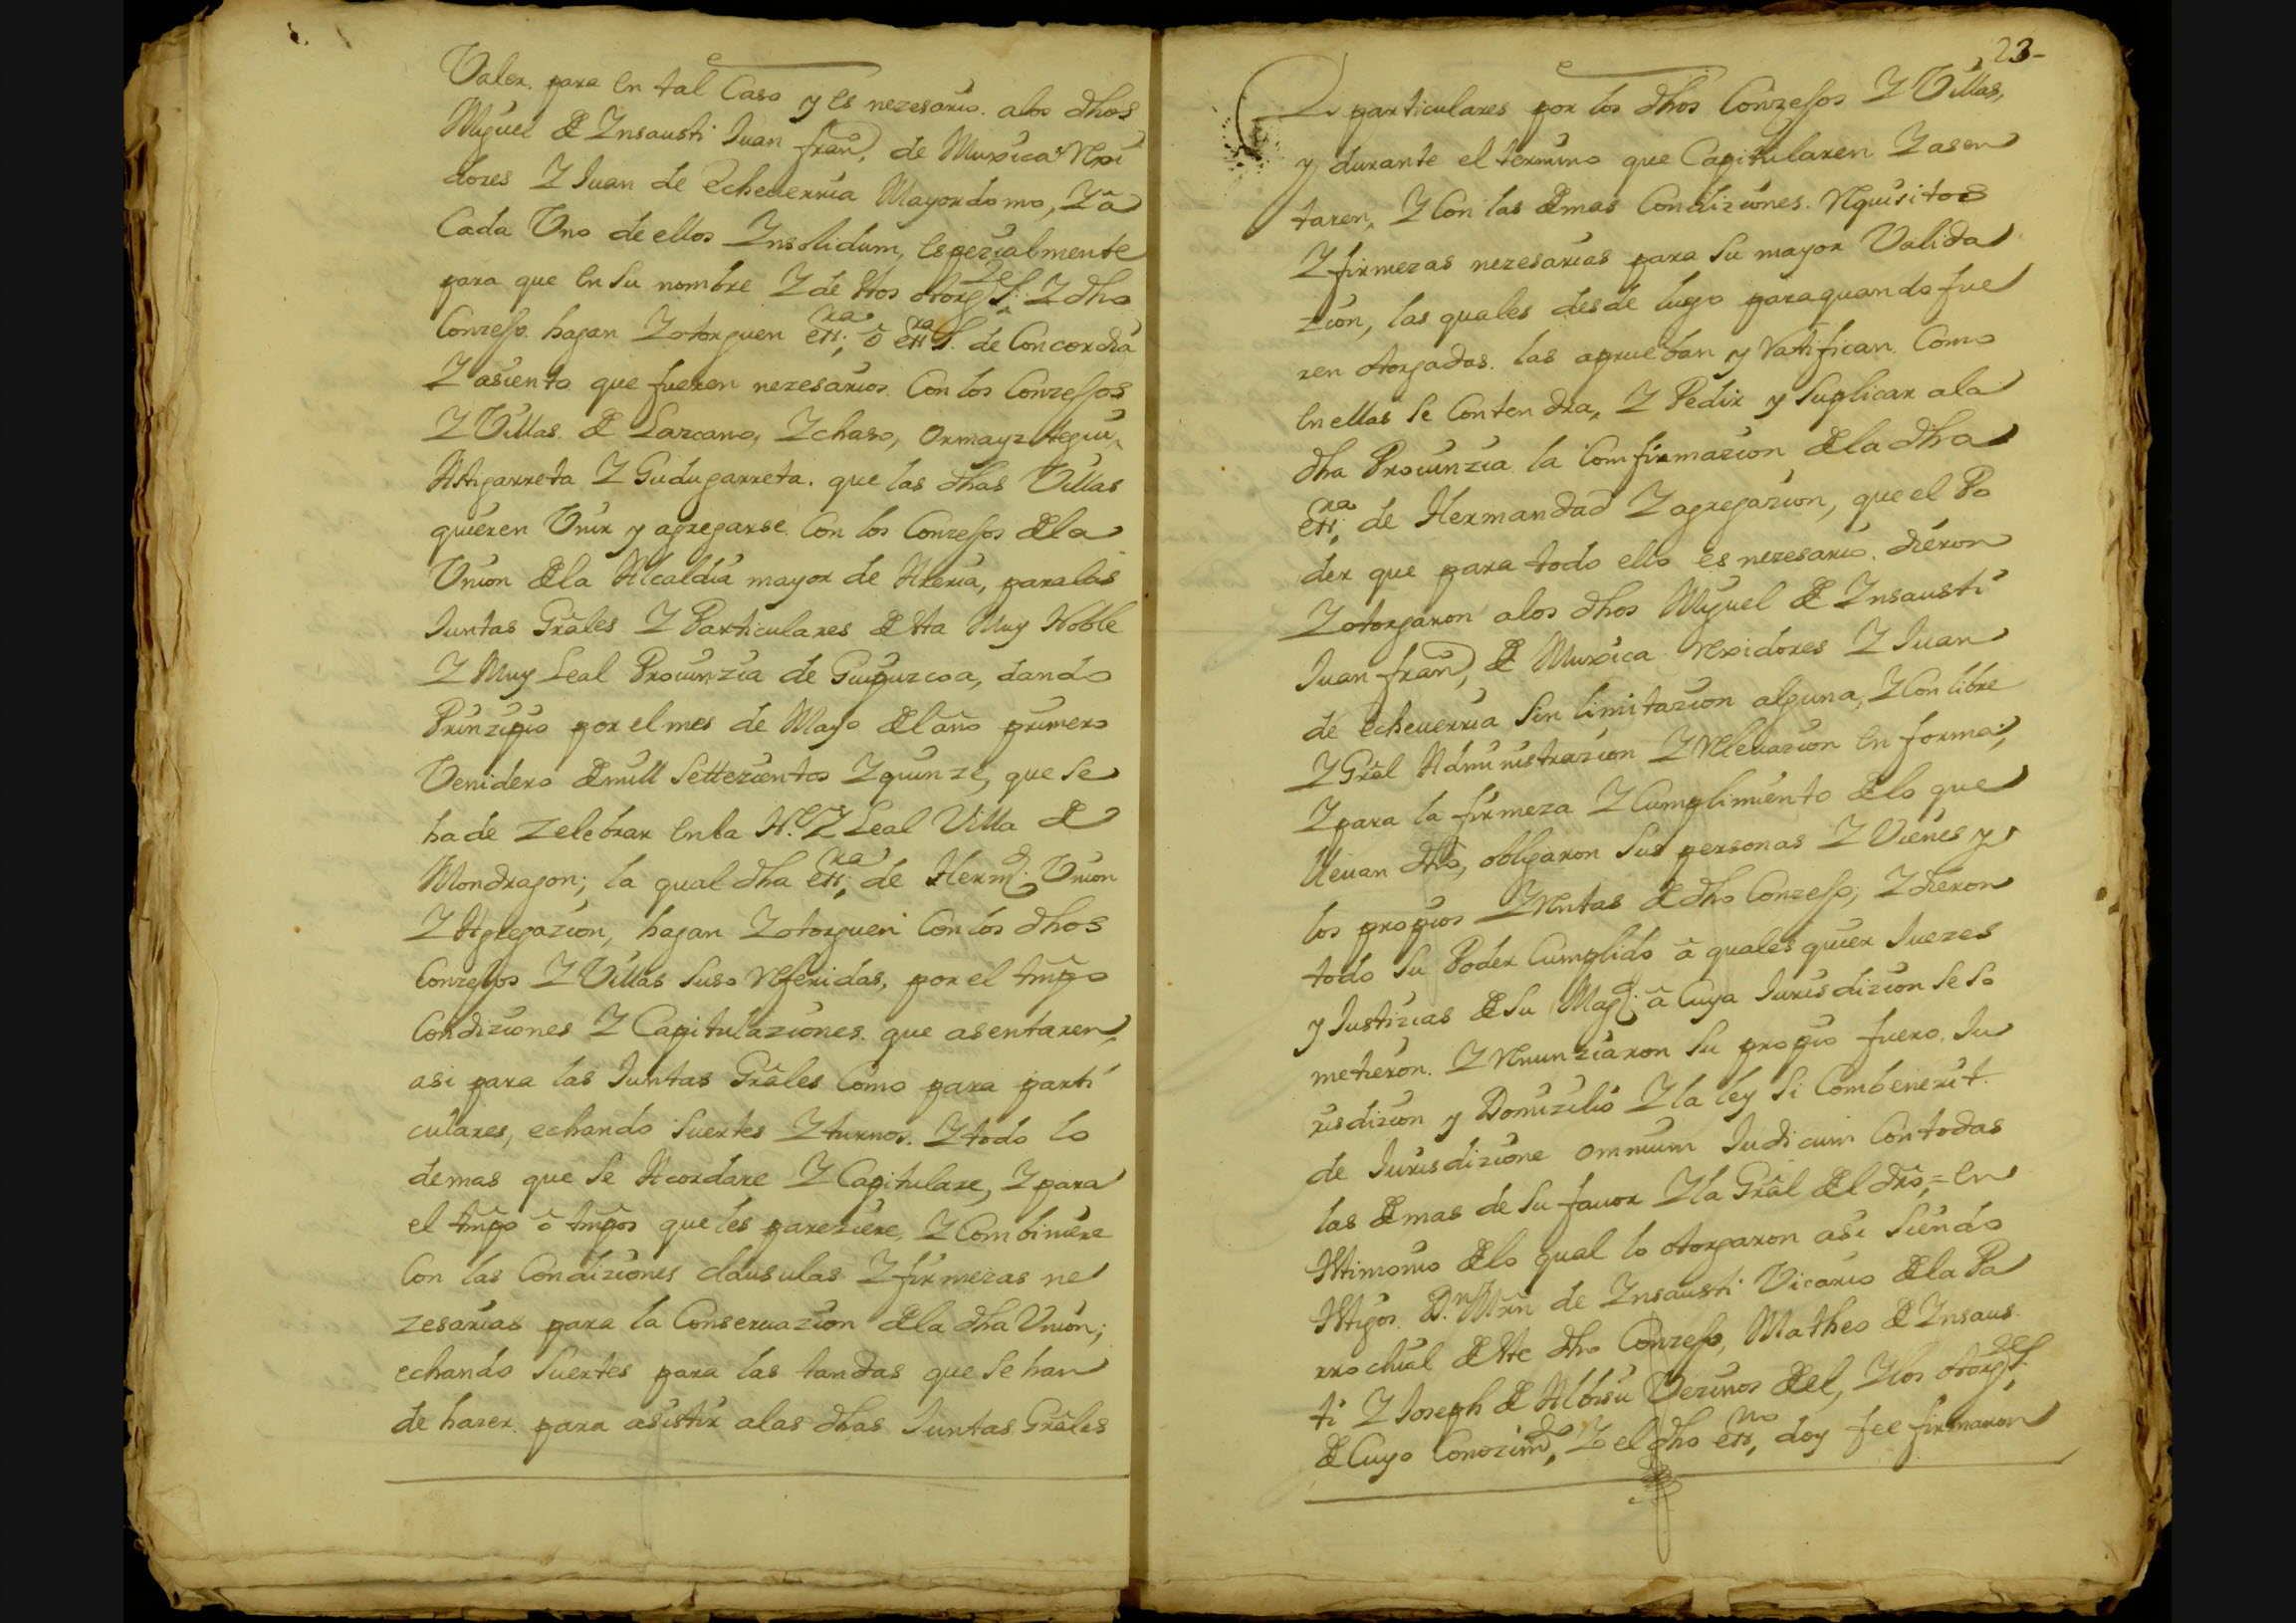 Valer. para en tal Caso y es nezesario. alos dhos
Miguel de Ynsausti Juan franco, de Muxica Rexi
dores Y Juan de echeuerria Mayordomo, Y â
Cada Vno de ellos Ynsolidum, espezialmente
para que en su nombre Y de stos otorgtes. Y dho
Conzejo. hagan Y otorguen essra, ô essras. de Concordia
Y asiento que fueren nezesarios. Con los Conzejos
Y Villas. de Lazcano, Ychaso, Ormayztegui,
Astigarreta Y Gudugarreta. que las dhas Villas
quieren Vnir y agregarse. Con los Conzejos de la
Vnion de la Alcaldia mayor de Areria, paralas
Juntas Grâles Y Particulares de sta Muy Noble
Y Muy Leal Prouinzia de Guipuzcoa, dando
Prinzipio por el mes de Mayo del año primero
Venidero de mill settezientos Y quinze, que se
hade zelebrar en la N.e Y Leal Villa de
Mondragon; la qual dha essra, de Hermd. Vnion
Y Agregazion, hagan Y otorguen Con los dhos
Conzejos Y Villas suso Referidas, por el tmpo
Condiziones Y Capitulaziones. que asentaren,
asi para las Juntas Grâles Como para parti
culares, echando suertes Y turnos. Y todo lo
demas que se Acordare Y Capitulare, Y para
el tmpo ô tmpos que les pareziere, Y Combiniere
Con las Condiziones clausulas Y firmezas ne
zesarias para la Conseruazion de la dha Vnion;
echando suertes para las tandas que se han
de hazer. para asistir alas dhas Juntas Grâles
23-
Y particulares por los dhos Conzejos Y Villas,
y durante el termino que Capitularen Y asen
taren, Y Con las demas Condiziones. Requisitos
Y firmezas nezesarias para su mayor Valida
zion, las quales desde luego paraquando fue
ren otorgadas. las aprueban y Ratifican. Como
en ellas se Contendra, Y Pedir y suplicar ala
dha Prouinzia la Comfirmazion de la dha
essra, de Hermandad Y agregazion, que el Po
der que para todo ello es nezesario. dieron
Y otorgaron alos dhos Miguel de Ynsausti
Juan franco, de Muxica Rexidores Y Juan
de echeuerria sin limitazion alguna, Y Con libre
Y Grâl Administrazion Y Releuazion en forma;
Y para la firmeza Y Cumplimiento de lo que
lleuan dho, obligaron sus personas Y Vienes y
los propios Y Rentas de dho Conzejo; Y dieron
todo su Poder Cumplido â quales quier Juezes
y Justizias de su Magd. â Cuya Jurisdizion se so
metieron. Y Renunziaron su propio fuero. Ju
risdizion y Domizilio Y la ley si Combenerit.
de Jurisdizione omnium Judicum Con todas
las demas de su fauor Y la Grâl del dro,= en
testimonio de lo qual lo otorgaron asi siendo
testigos. Dn. Mrn de Ynsausti Vicario de la Pa
rrochial de ste dho Conzejo, Matheo de Ynsaus
ti Y Joseph de Albisu Vezinos de el, Y los otorgtes.
de Cuyo Conozimto, Yo el dho essno, doy fee firmaron